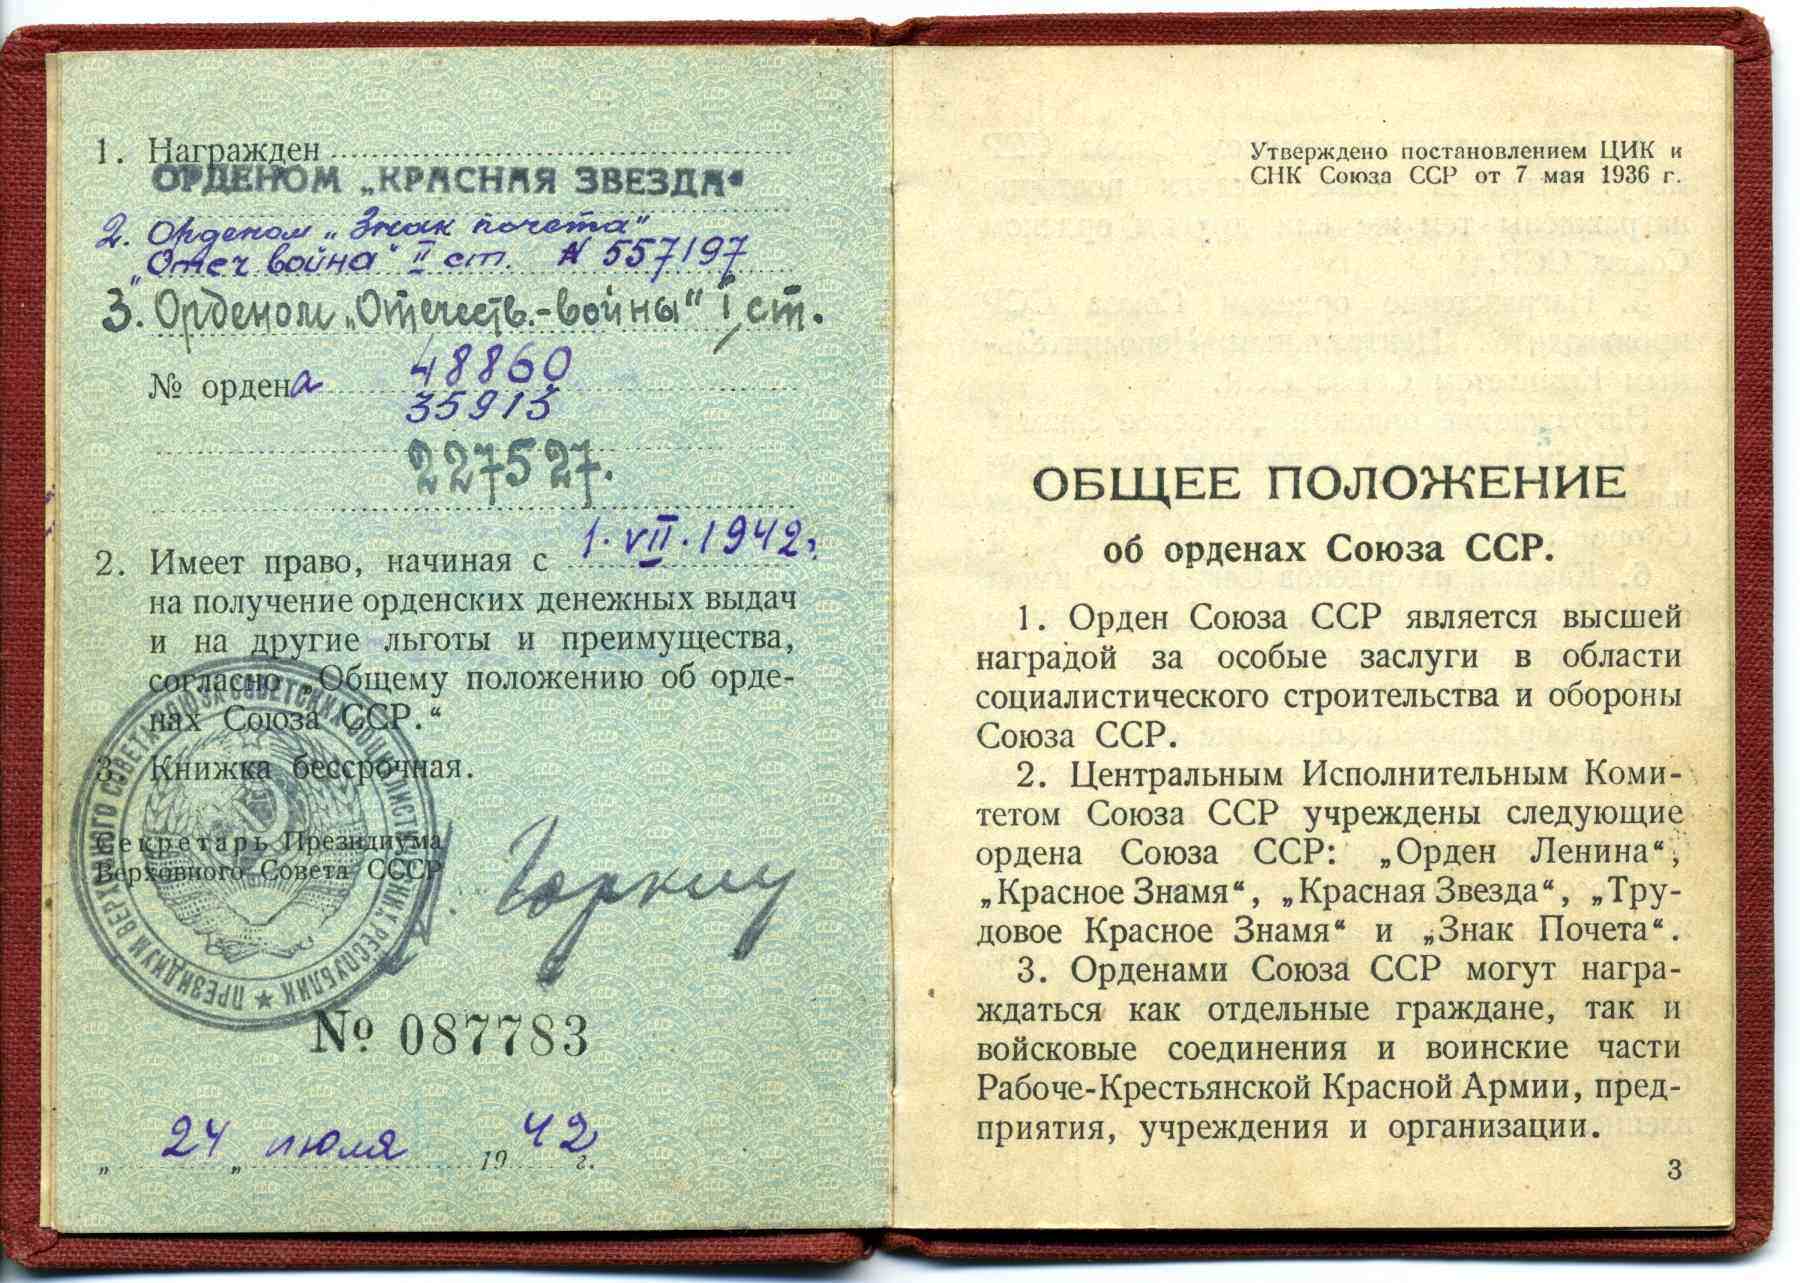 1. Награжден
ОРДЕНОМ „КРАСНАЯ ЗВЕЗДА"
2. Орденом „Знак почета"
„Отеч война" II ст. № 557197
3. Орденом „Отечеств.-войны" I ст.
№ ордена 48860
35913
227527.
2. Имеет право, начиная с 1.VII.1942г.
на получение орденских денежных выдач
и на другие льготы и преимущества,
согласно „Общему положению об орде-
нах Союза ССР.“
3. Книжка бессрочная.
Секретарь Президиума
Верховного Совета СССР
А. Горкин
ПРЕЗИДИУМ ВЕРХОВНОГО СОВЕТА СОЮЗА СОВЕТСКИХ СОЦИАЛИСТИЧЕСКИХ РЕСПУБЛИК ★
№ 087783
„ 24 „ июля 1942 г.
Утверждено постановлением ЦИК и
СНК Союза ССР от 7 мая 1936 г.
ОБЩЕЕ ПОЛОЖЕНИЕ
об орденах Союза ССР.
1. Орден Союза ССР является высшей
наградой за особые заслуги в области
социалистического строительства и обороны
Союза ССР.
2. Центральным Исполнительным Коми-
тетом Союза ССР учреждены следующие
ордена Союза ССР: „Орден Ленина“,
„Красное Знамя“, „Красная Звезда“, „Тру-
довое Красное Знамя“ и „Знак Почета“.
3. Орденами Союза ССР могут награ-
ждаться как отдельные граждане, так и
войсковые соединения и воинские части
Рабоче-Крестьянской Красной Армии, пред-
приятия, учреждения и организации.
3